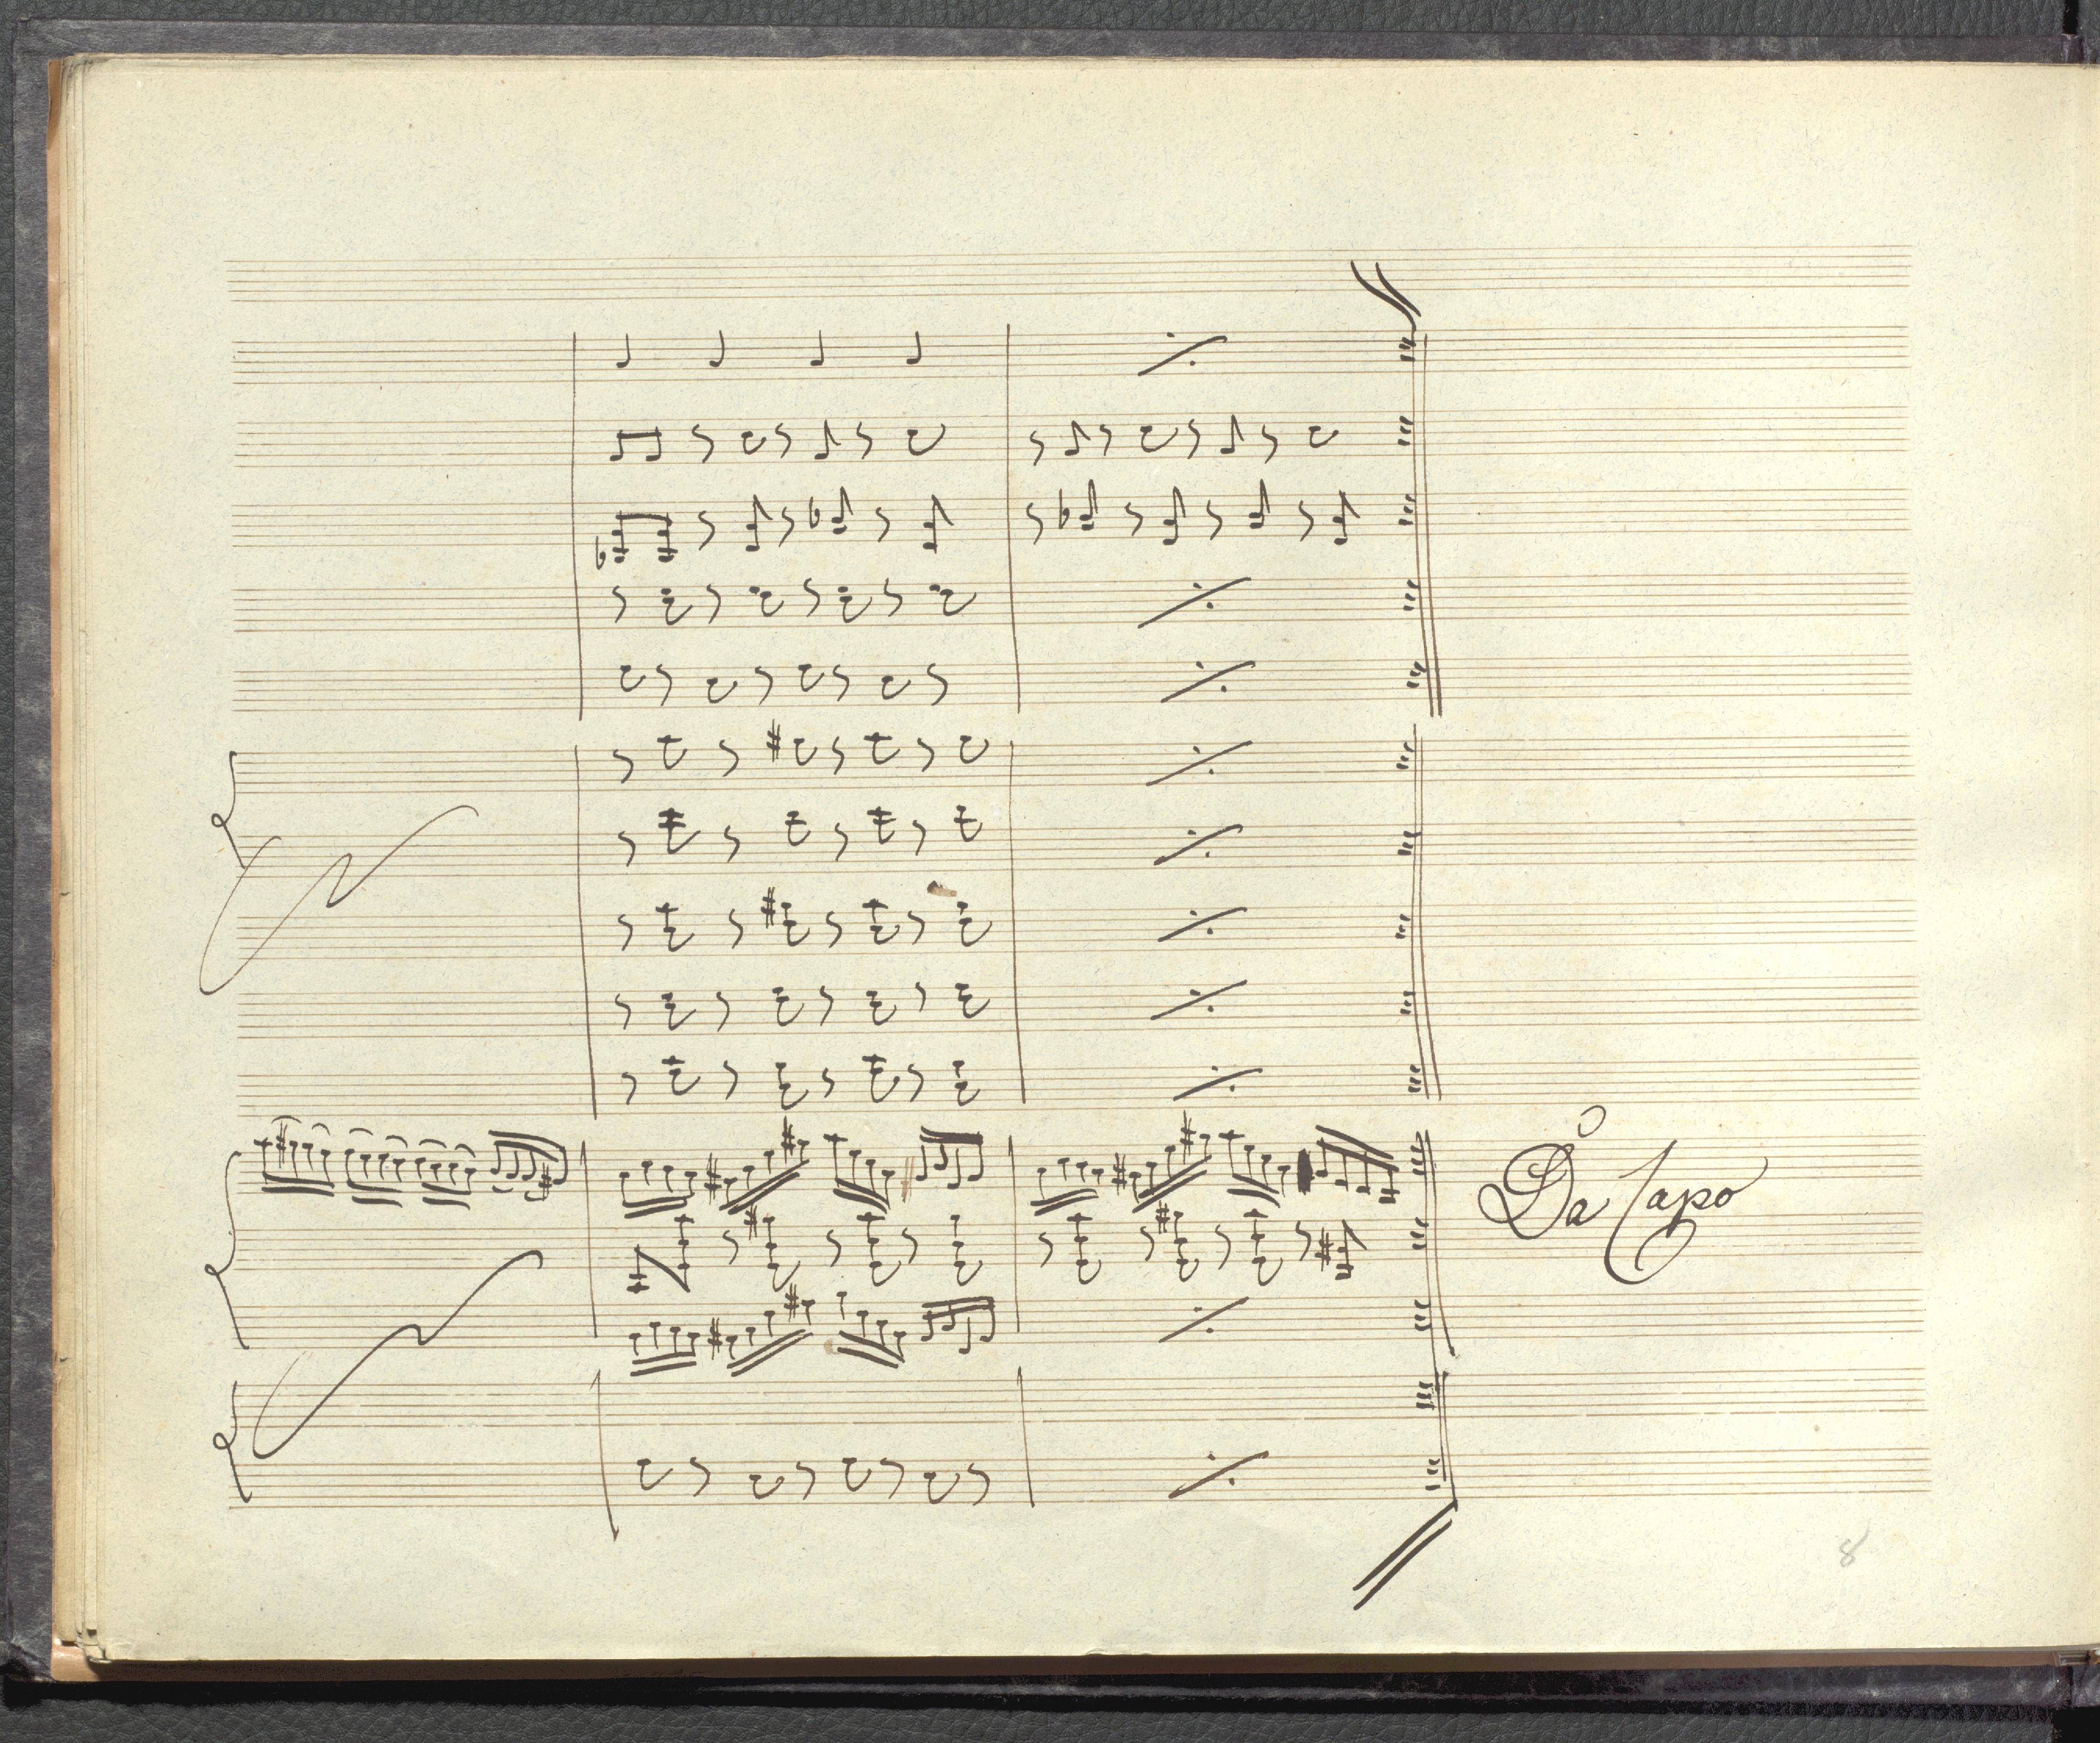 Da Capo
8